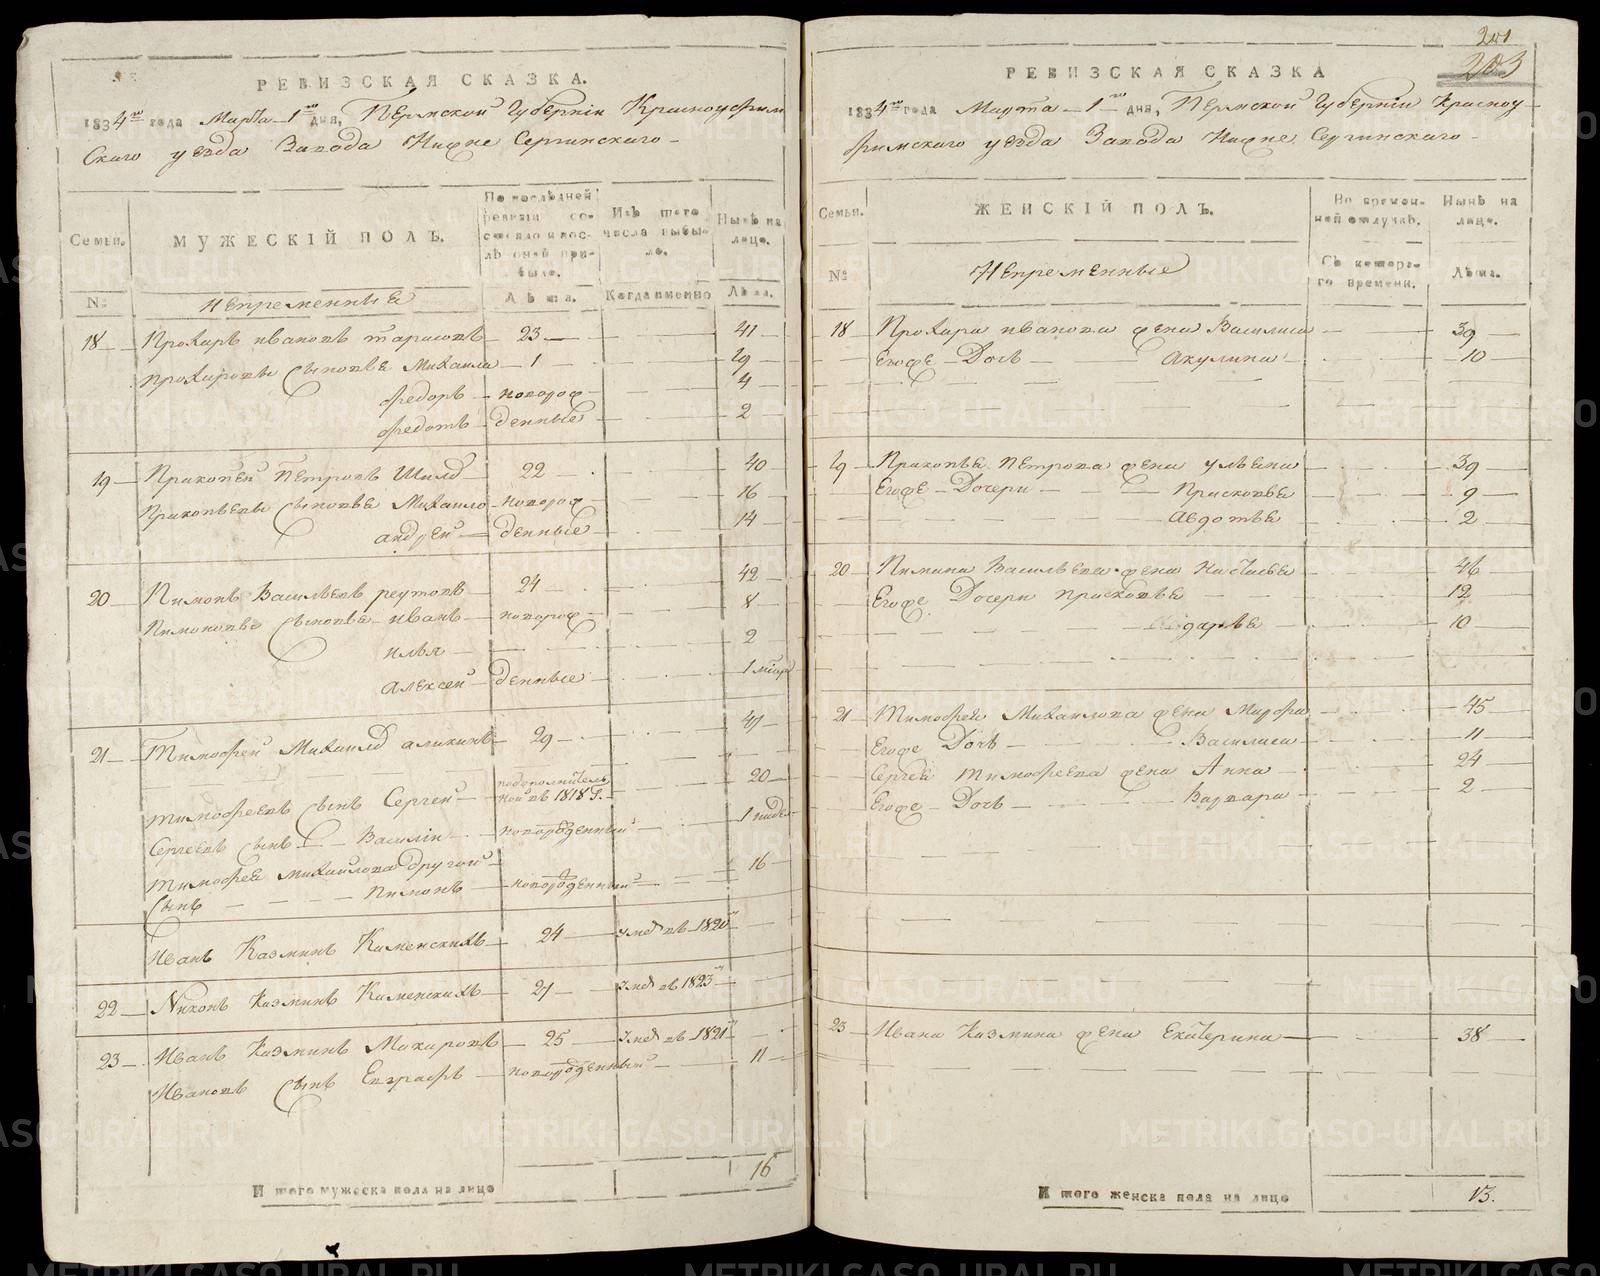 РЕВИЗСКАЯ СКАЗКА.
1834го года Марта 1го дня, Пермской Губернiи Красноуфим
скаго уезда Завода Нижне Сергинскаго
Семьи.
МУЖЕСКIЙ ПОЛЪ.
По послѣдней ревизiи состояло и послѣ оной прибыло.
Изъ того числа выбыло.
Нынѣ на лицо.
№
Непременные
Лѣта.
Когда именно
Лѣта.
18 Прохаръ Ивановъ Тарасовъ 23 41
Прохаровы сыновье Михаила 1 19
Федоръ новорож 4
Федотъ денные 2
19 Пракопей Петровъ Шилд 22 40
Пракопьевы сыновье Михаило новорож 16
Андрей денные 14
20 Пимонъ Васильевъ Реутовъ 24 42
Пимоновы сыновье Иванъ новорож 8
Илья 2
Алексей денные 1 мѣсяц
21 Тимофей Михаилд Аликинъ 29 47
Тимофеевъ сынъ Сергей подополнитель
ной въ 1818 г. 20
Сергеевъ сынъ Василiи новорожденный 1 недел
Тимофея Михаилова другой
сынъ Пимонъ новорожденный 16
Иванъ Казминъ Каменскихъ 24 умер въ 1820
22 Никонъ Казминъ Каменскихъ 27 умер въ 1823
23 Иванъ Казминъ Макаровъ 25 умер въ 1821
Ивановъ сынъ Евграфъ новорожденный 11
И того мужеска пола на лицо 16
201
203
РЕВИЗСКАЯ СКАЗКА
1834го года Марта 1го дня, Пермской Губернiи Красноу
фимскаго уезда Завода Нижне Сергинскаго
Семьи.
ЖЕНСКIЙ ПОЛЪ.
Во временной отлучкѣ.
Нынѣ на лицо.
№
Непременные
Съ котораго времени.
Лѣта.
18 Прохара Иванова жена Василиса 39
Егоже Дочь Акулина 10
19 Пракопья Петрова жена Ульяна 39
Егоже Дочери Прасковья 9
Авдотья 2
20 Пимана Васильева жена Настасья 46
Егоже Дочери Прасковья 12
Дарья 10
21 Тимофея Михаилова жена Марфа 45
Егоже Дочь Василиса 11
Сергея Тимофеева жена Анна 24
Егоже Дочь Варвара 2
23 Ивана Казмина жена Екатерина 38
И того женска пола на лицо 13.
METRIKI.GASO-URAL.RU